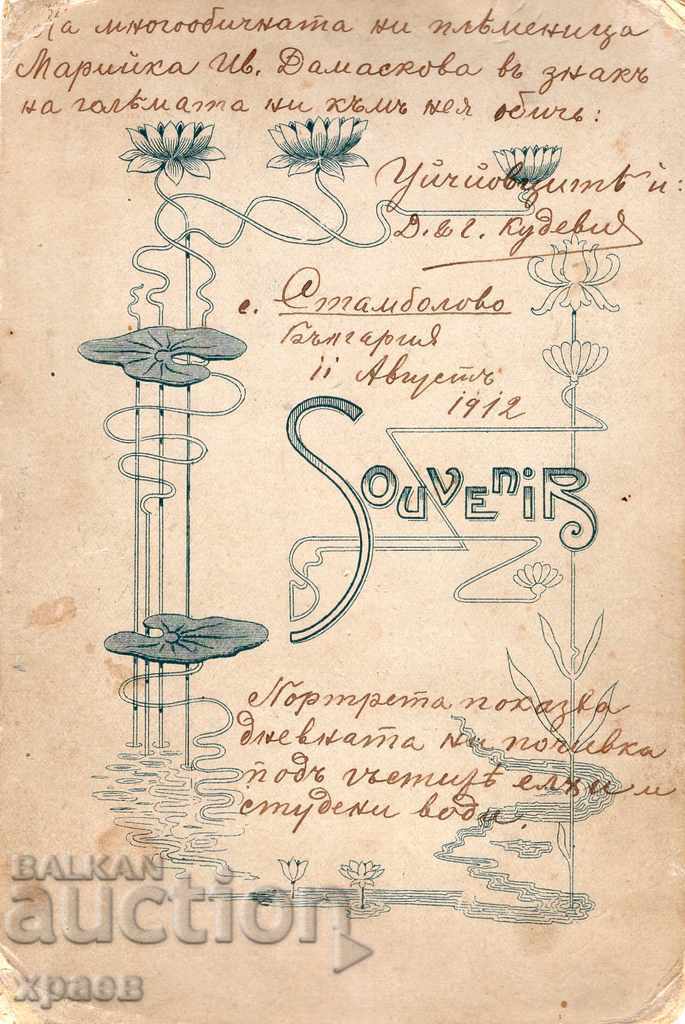 На многообичната ни плѣменица
Марийка Ив. Дамаскова въ знакъ
на голѣмата ни къмъ нея обичь:
Уйчйовцитѣ ѝ:
Д. & Г. Кудеви
с. Стамболово
България
11 Августъ
1912
Souvenir
Портрета показва
дневната ни почивка
подъ гъститѣ елхи и
студени води.
BALKAN
auction
храов